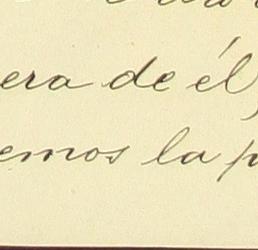 era de él,
emos la p